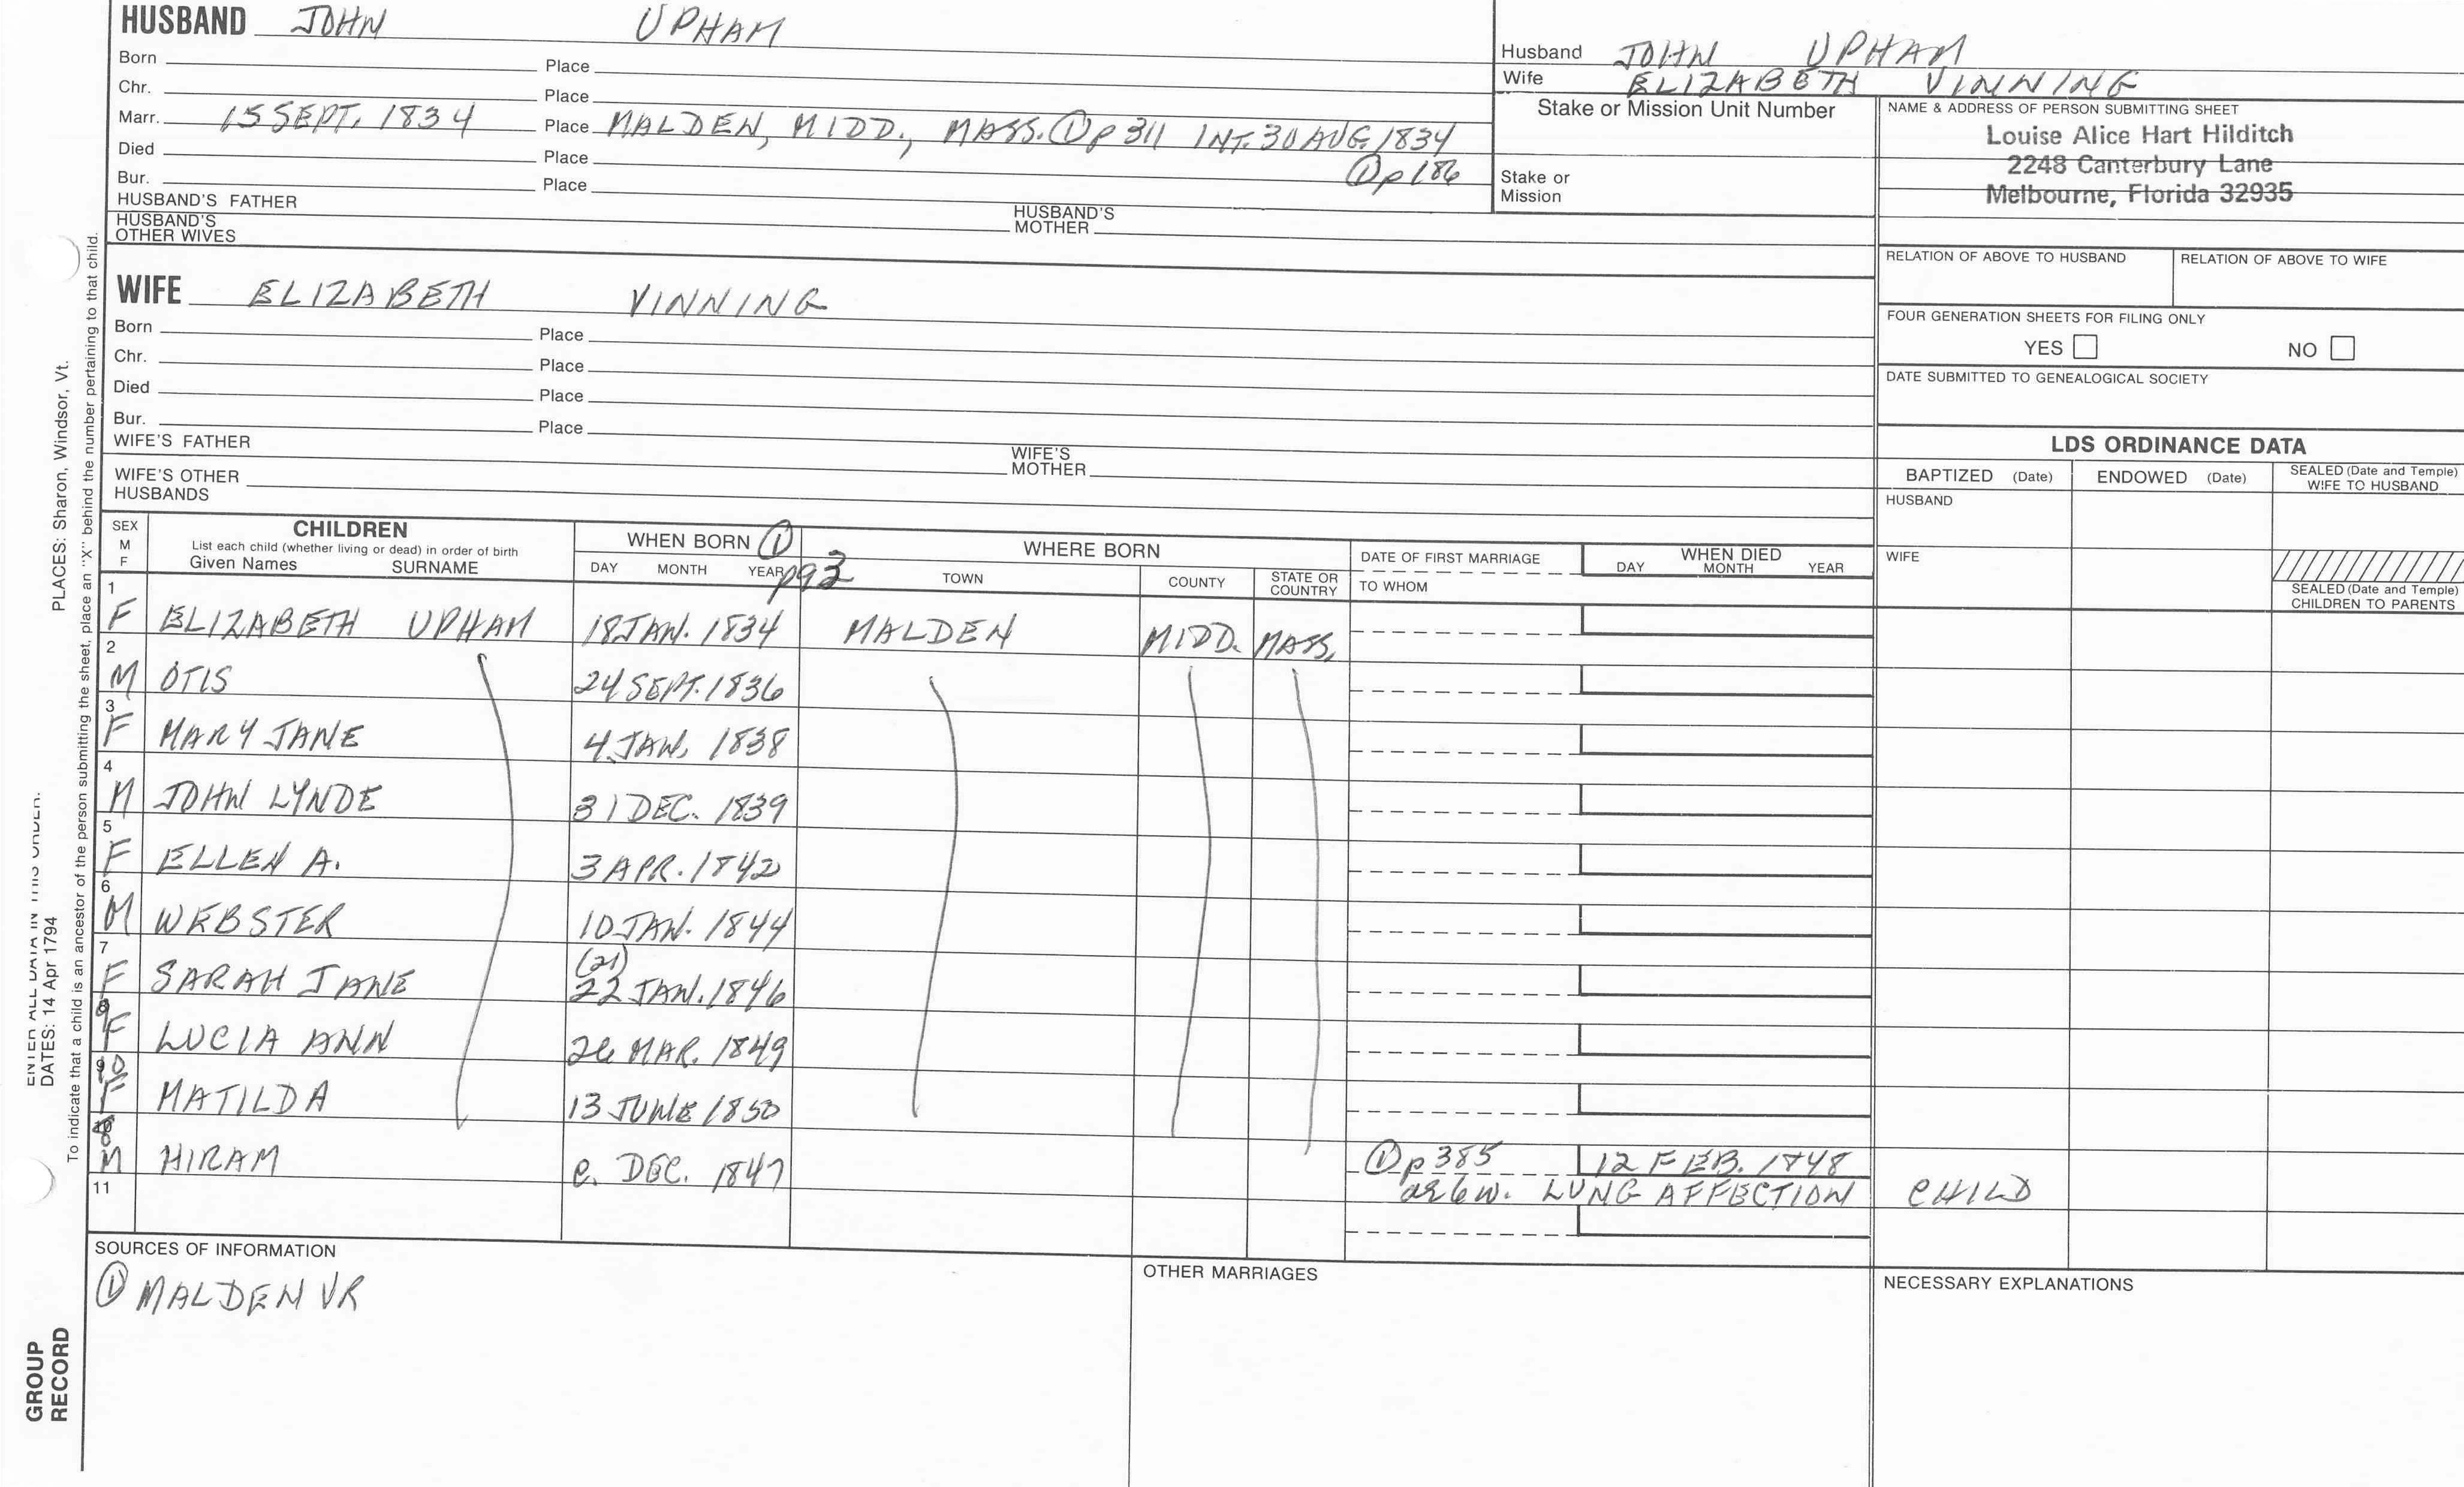 HUSBAND JOHN UPHAM
Born Place
Chr. Place
Marr. 15 SEPT. 1834 Place MALDEN, MIDD., MASS. ① p 311 INT. 30 AUG. 1834
Died Place ① p 186
Bur. Place
HUSBAND'S FATHER HUSBAND'S MOTHER
HUSBAND'S OTHER WIVES
Husband JOHN UPHAM
Wife ELIZABETH VINNING
Stake or Mission Unit Number
Stake or Mission
NAME & ADDRESS OF PERSON SUBMITTING SHEET
Louise Alice Hart Hilditch
2248 Canterbury Lane
Melbourne, Florida 32935
RELATION OF ABOVE TO HUSBAND RELATION OF ABOVE TO WIFE
FOUR GENERATION SHEETS FOR FILING ONLY
YES NO
DATE SUBMITTED TO GENEALOGICAL SOCIETY
WIFE ELIZABETH VINNING
Born Place
Chr. Place
Died Place
Bur. Place
WIFE'S FATHER WIFE'S MOTHER
WIFE'S OTHER HUSBANDS
LDS ORDINANCE DATA
BAPTIZED (Date) ENDOWED (Date) SEALED (Date and Temple) WIFE TO HUSBAND
HUSBAND
WIFE
SEALED (Date and Temple) CHILDREN TO PARENTS
SEX M F
CHILDREN
List each child (whether living or dead) in order of birth
Given Names SURNAME
WHEN BORN ① p93
DAY MONTH YEAR
WHERE BORN
TOWN COUNTY STATE OR COUNTRY
DATE OF FIRST MARRIAGE
TO WHOM
WHEN DIED
DAY MONTH YEAR
1 F ELIZABETH UPHAM 18 JAN. 1834 MALDEN MIDD. MASS.
2 M OTIS 24 SEPT. 1836
3 F MARY JANE 4 JAN. 1838
4 M JOHN LYNDE 31 DEC. 1839
5 F ELLEN A. 3 APR. 1842
6 M WEBSTER 10 JAN. 1844
7 F SARAH JANE (21) 22 JAN. 1846
9 F LUCIA ANN 26 MAR. 1849
10 F MATILDA 13 JUNE 1850
8 M HIRAM c. DEC. 1847 ① p 385 12 FEB. 1848
ae 6 w. LUNG AFFECTION CHILD
11
SOURCES OF INFORMATION
① MALDEN VR
OTHER MARRIAGES
NECESSARY EXPLANATIONS
PLACES: Sharon, Windsor, Vt.
DATES: 14 Apr 1794
To indicate that a child is an ancestor of the person submitting the sheet, place an "X" behind the number pertaining to that child.
GROUP RECORD